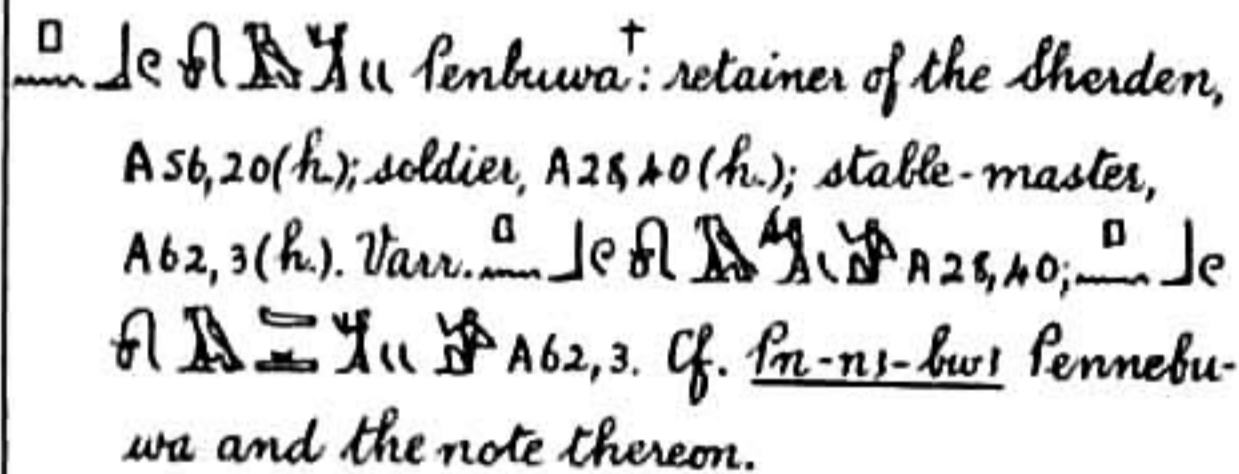 𓊪𓈖𓃀𓏲𓍯𓄿 Penbuwa†: retainer of the Sherden,
A56,20(h.); soldier, A28,40(h.); stable-master,
A62,3(h.). Varr. 𓊪𓈖𓃀𓏲𓍯𓄿 A28,40; 𓊪𓈖𓃀𓏲
𓍯𓄿 A62,3. Cf. Pn-nꜣ-bwꜣ Pennebu-
wa and the note thereon.